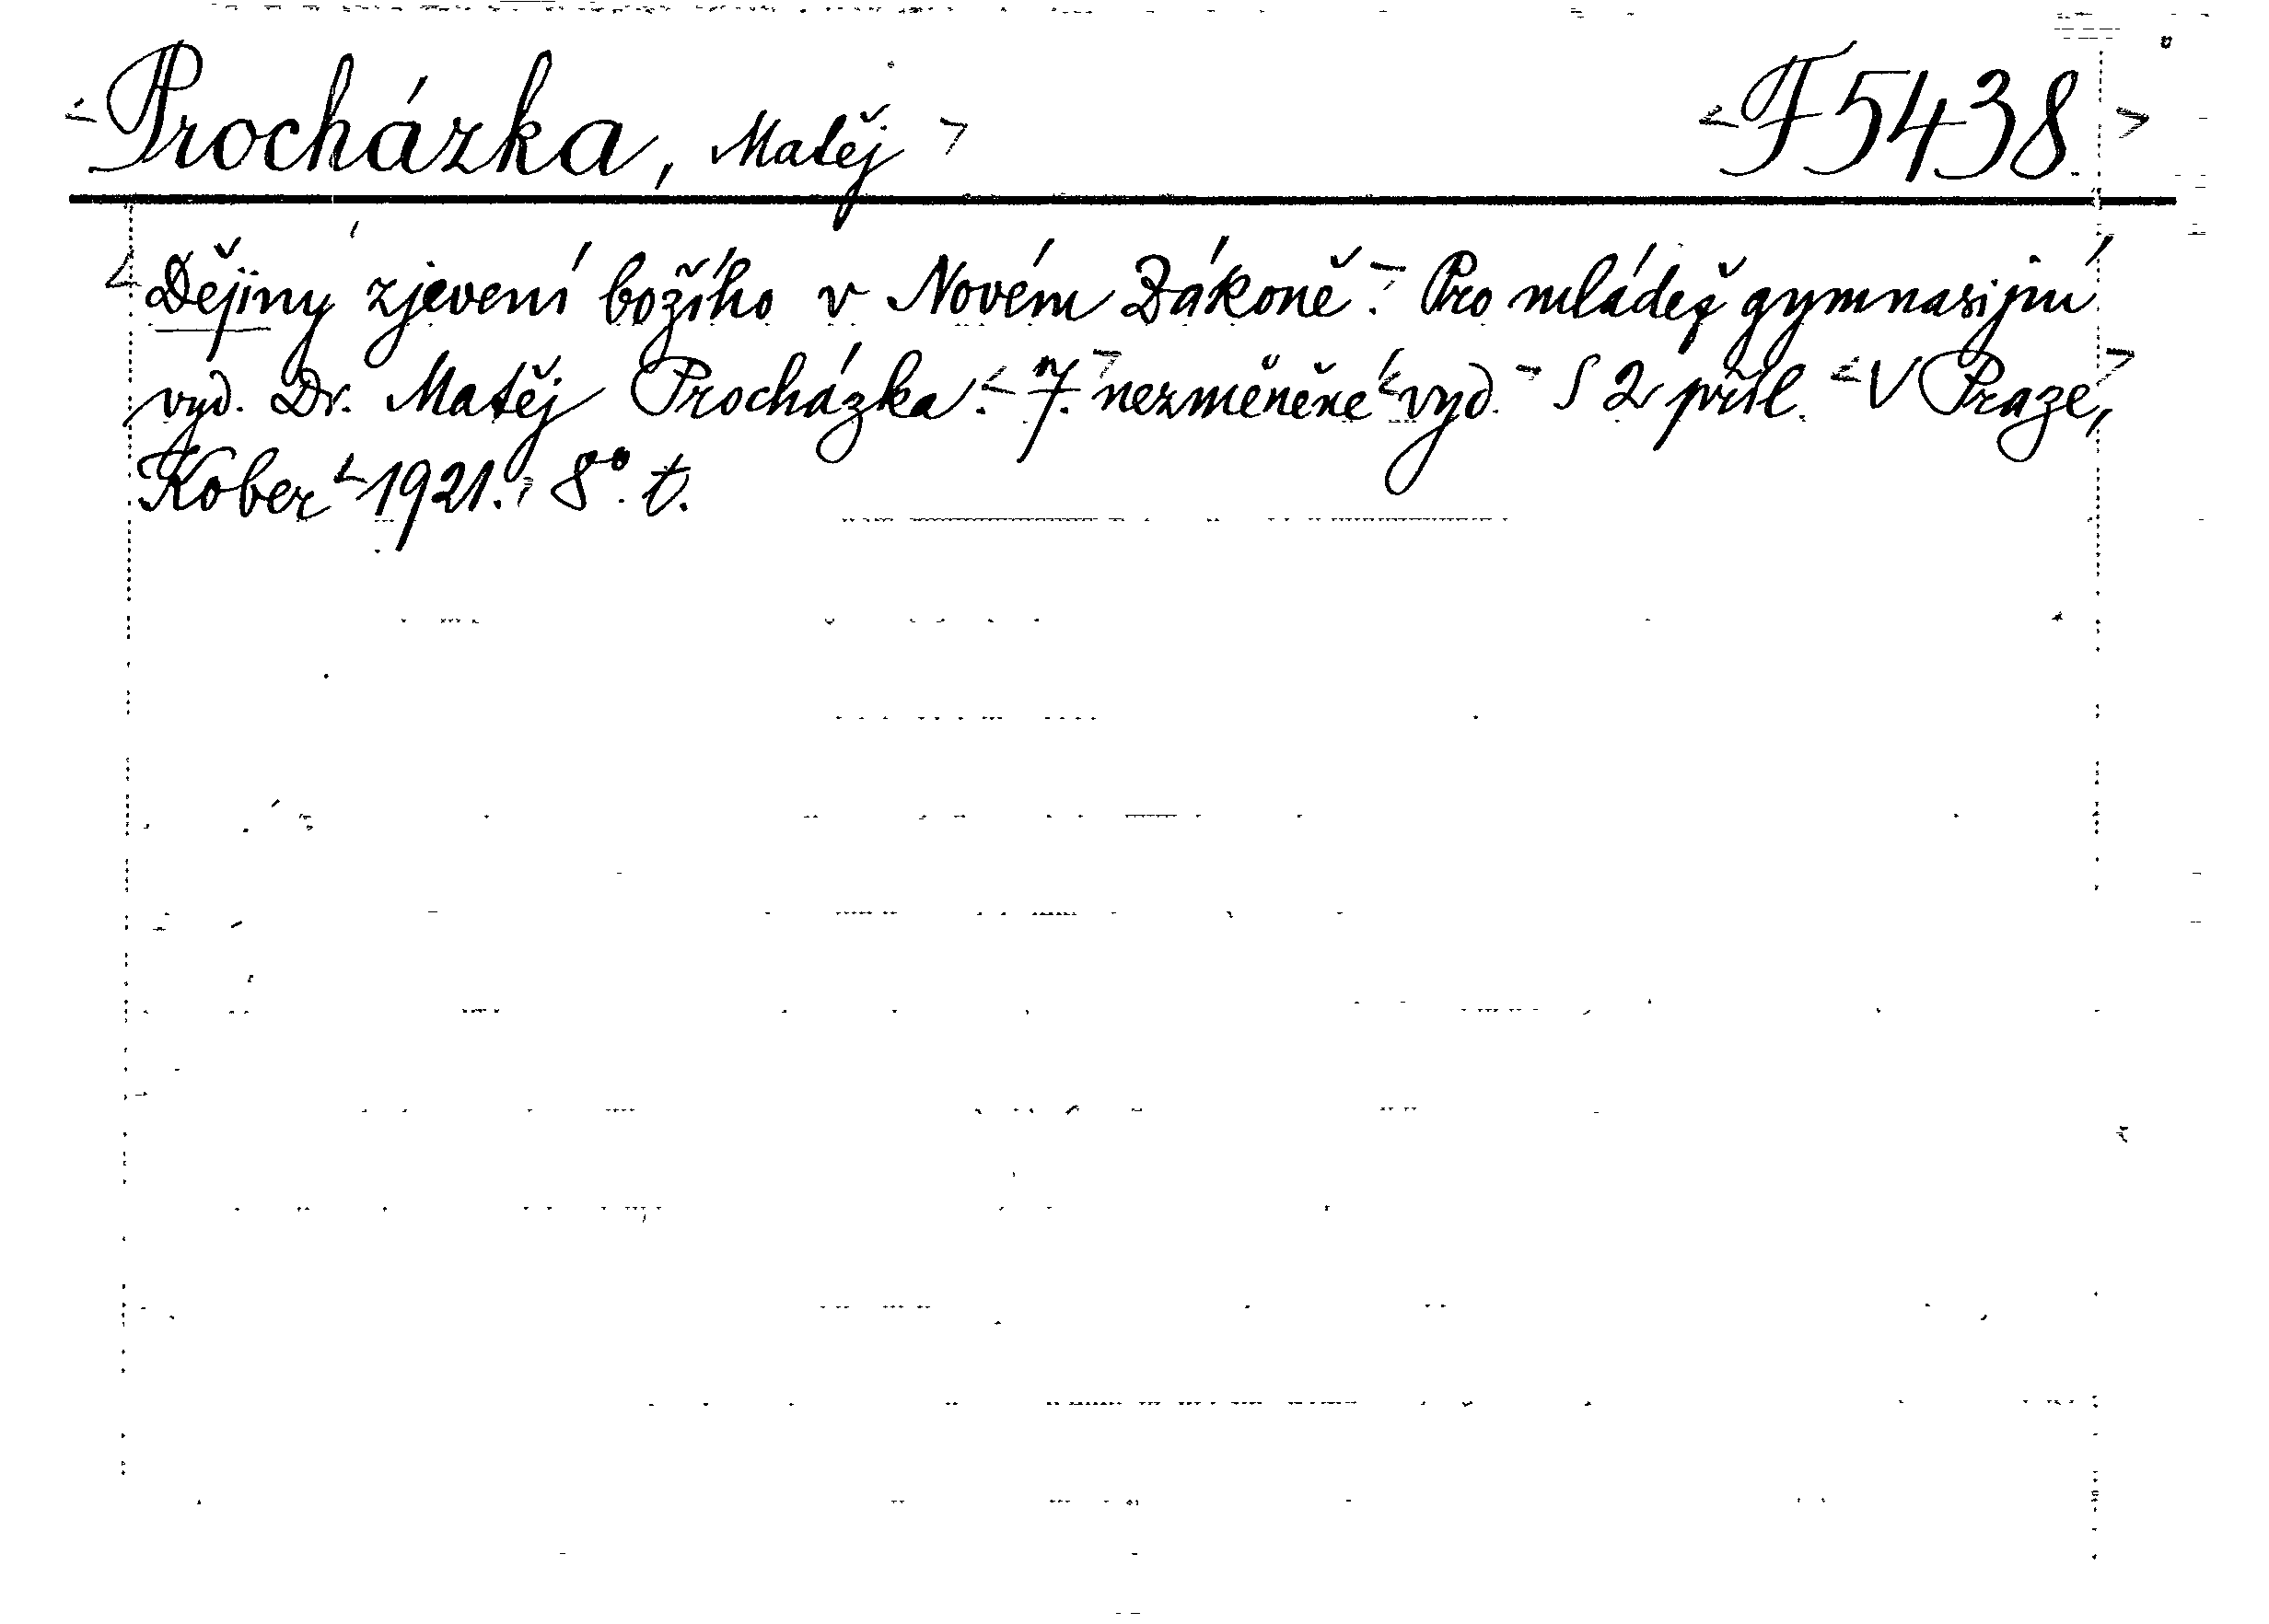 <Procházka, Matěj> <F 5438.>
<Dějiny zjevení božího v Novém Zákoně.> Pro mládež gymnasijní
vyd. Dr. Matěj Procházka. <7.> nezměněné <vyd.> S 2 příl. <V Praze,>
Kober <1921.> 8°. t.